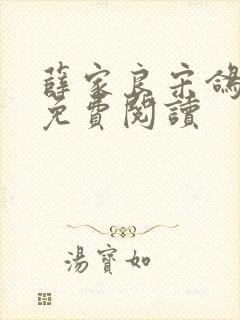 薛家良宋鴿
免費閱讀
湯寶如